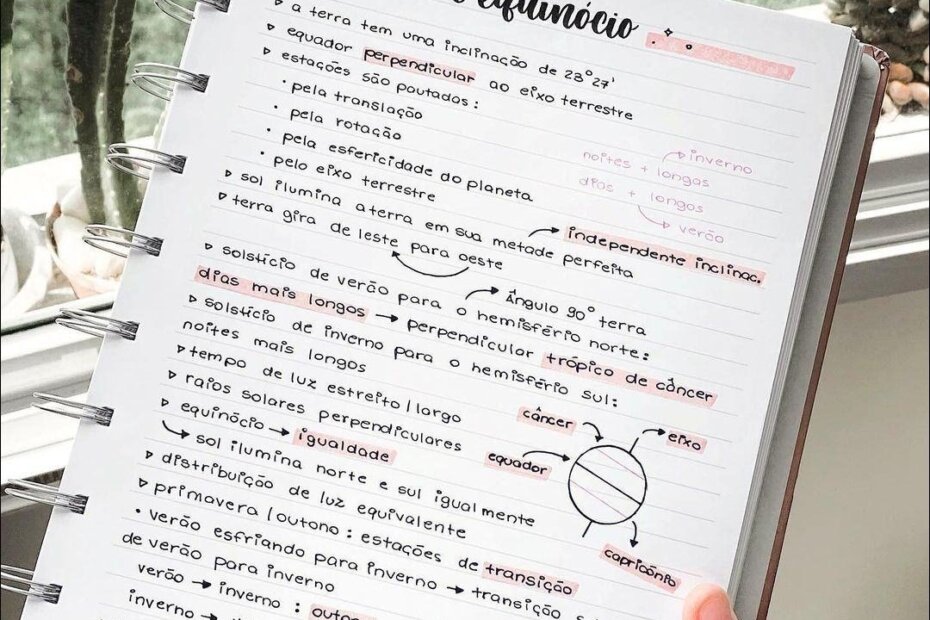 equinócio
▹ a terra tem uma inclinação de 23°27'
▹ equador perpendicular ao eixo terrestre
▹ estações são pautadas:
• pela translação
• pela rotação
• pela esfericidade do planeta
• pelo eixo terrestre
noites + longas → inverno
dias + longos → verão
▹ sol ilumina a terra em sua metade perfeita → independente inclinac.
▹ terra gira de leste para oeste
▹ solstício de verão para o hemisfério norte: → Ângulo 90° terra
dias mais longos → perpendicular trópico de câncer
▹ solstício de inverno para o hemisfério sul:
noites mais longos
▹ tempo de luz estreito/largo
▹ raios solares perpendiculares
▹ equinócio → igualdade
→ sol ilumina norte e sul igualmente
▹ distribuição de luz equivalente
▹ primavera/outono: estações de transição
• verão esfriando para inverno → transição
de verão para inverno
verão → inverno :
inverno →
câncer
eixo
equador
capricónio